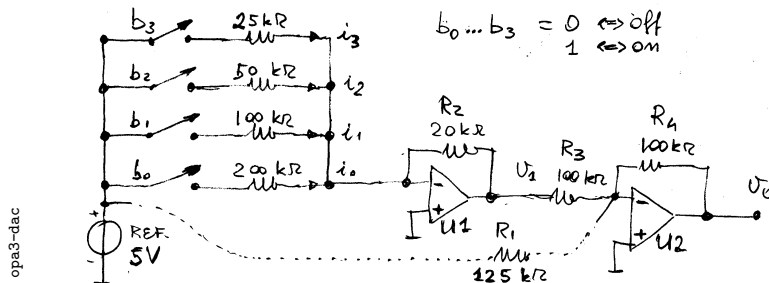 b3 25kΩ i3
b2 50kΩ i2
b1 100kΩ i1
b0 200kΩ i0
b0...b3 = 0 <=> off
1 <=> on
R2
20kΩ
- + U1
v1
R3
100kΩ
R4
100kΩ
- + U2
v0
+
-
REF.
5V
R1
125kΩ
opa3-dac